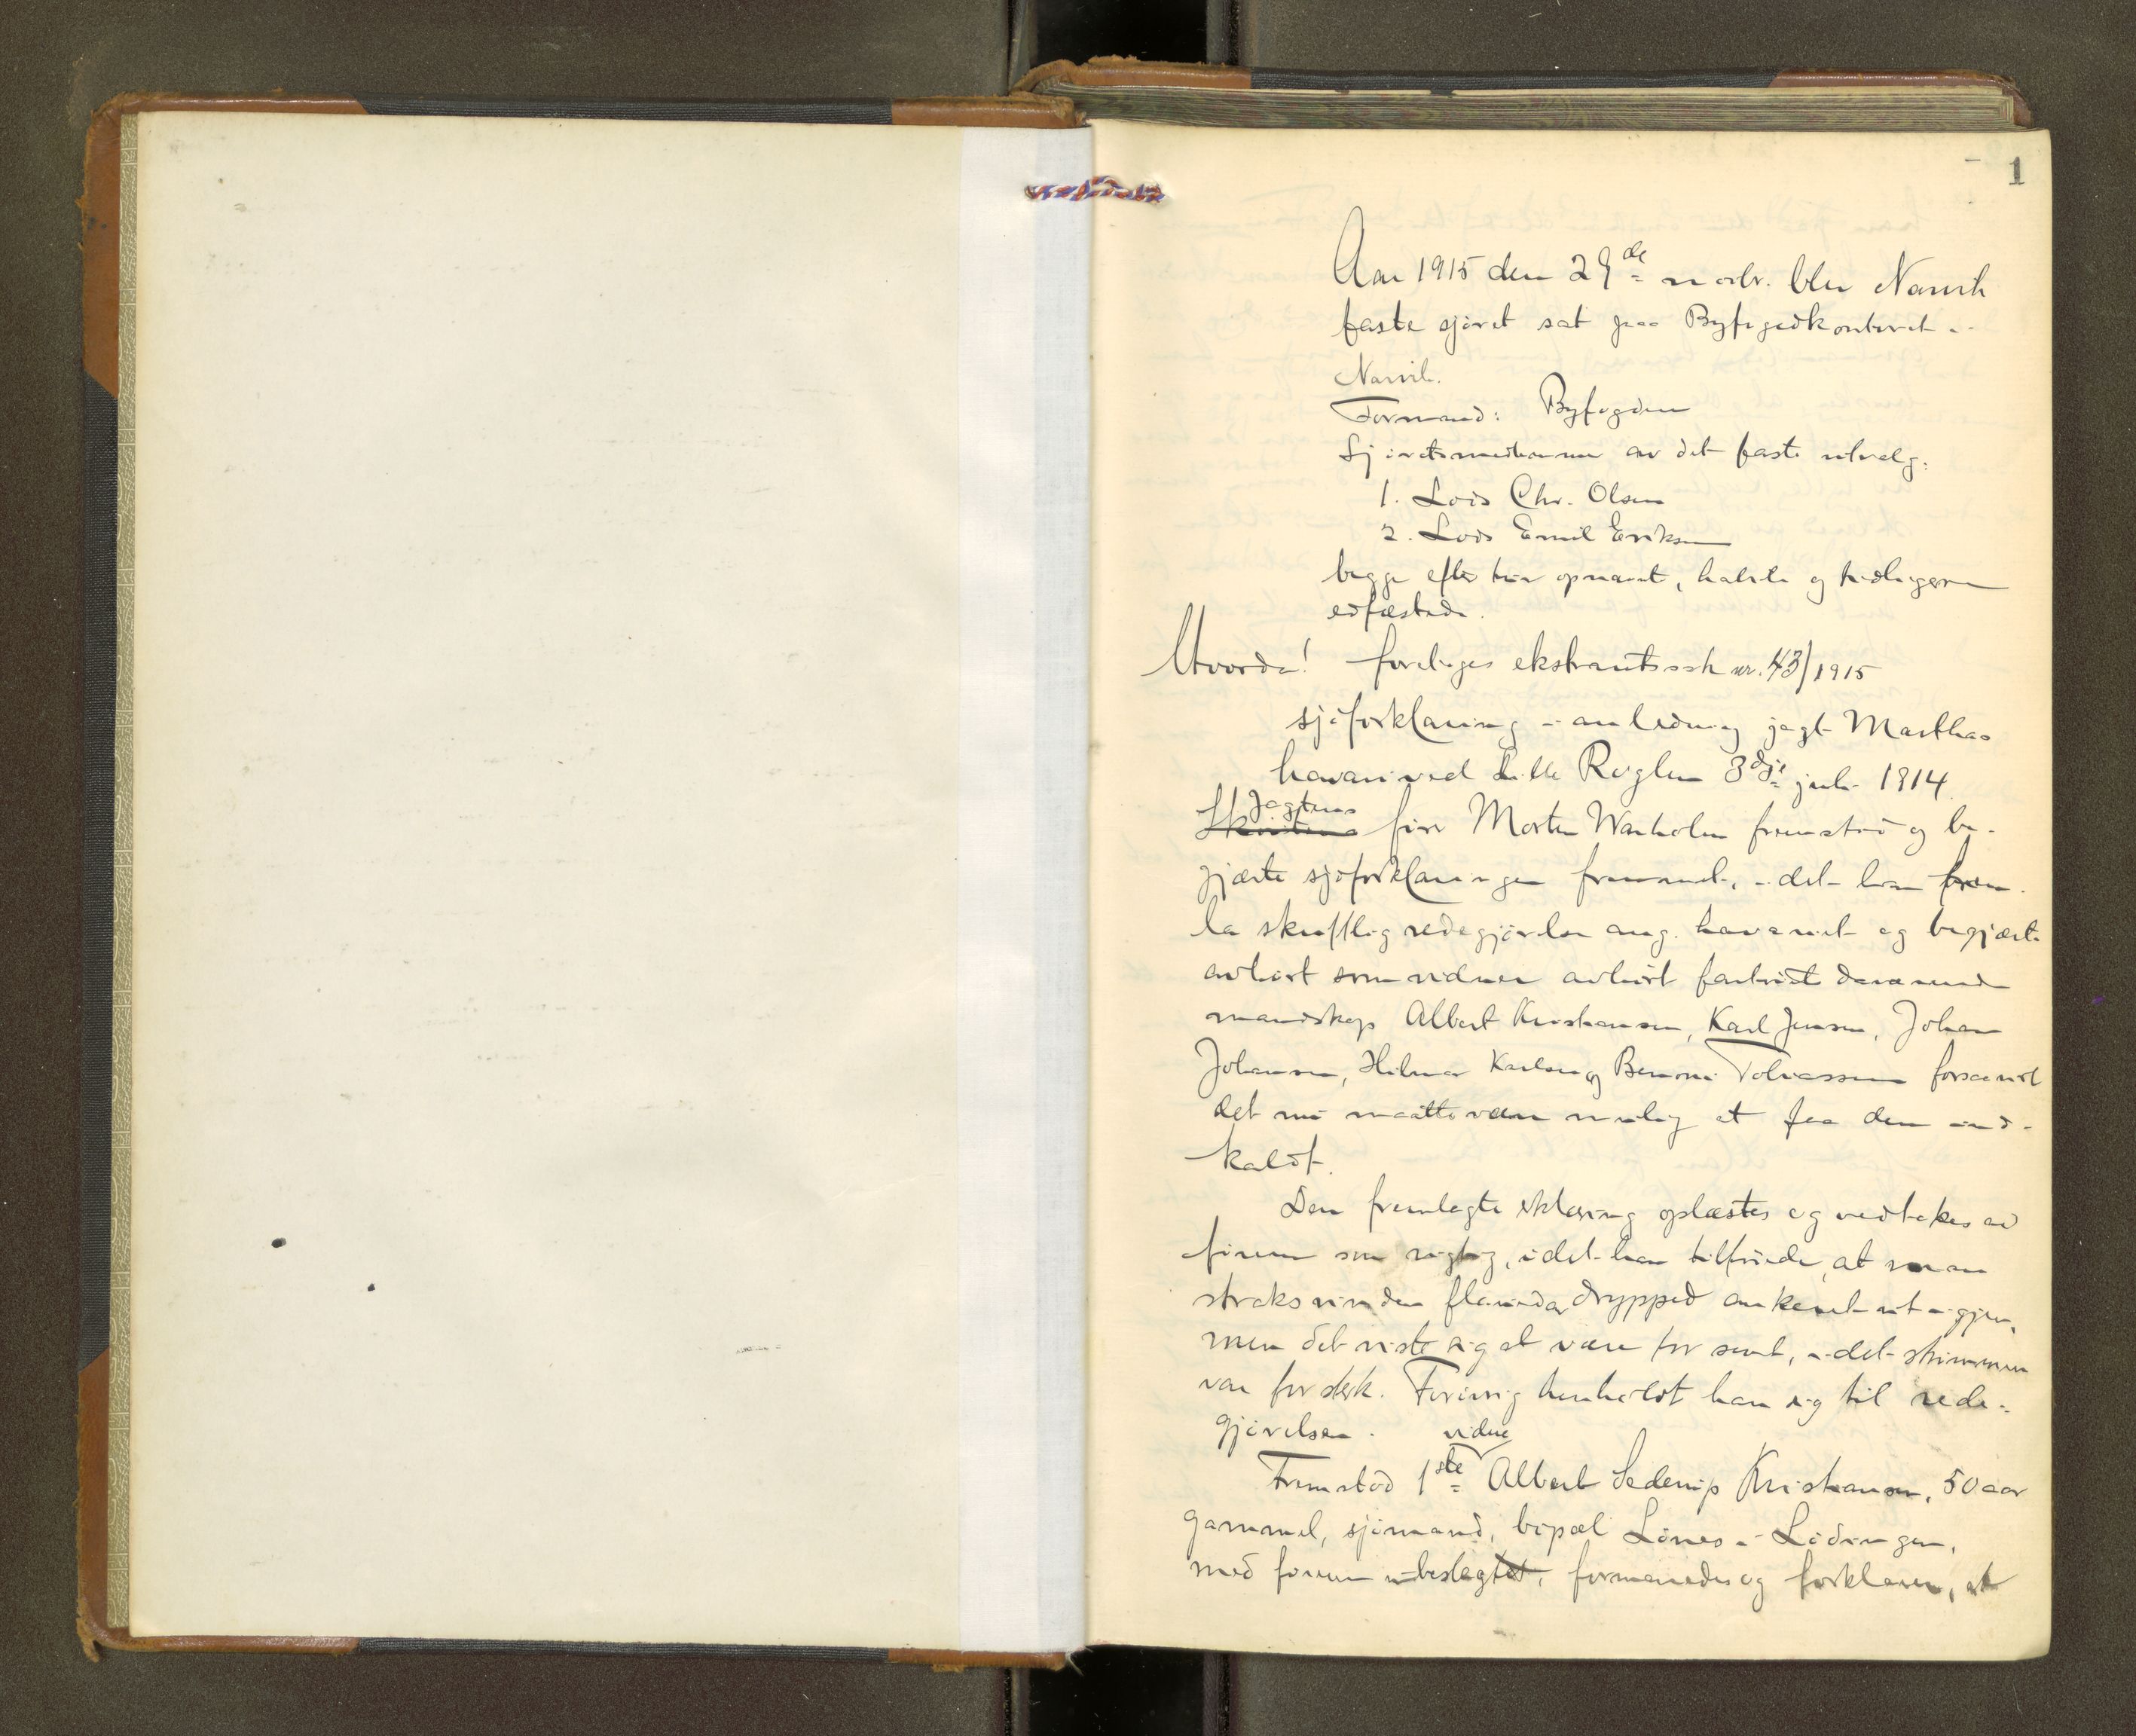 1
Aar 1915 den 29de novbr. blev Narvik
faste sjøret sat paa Byfogedkontoret i
Narvik.
Formand: Byfogden
Sjøretsmedlemmer av det faste utvalg:
1. Lods Chr. Olsen
2. Lods Emil Eriksen
begge efter tur opnævnt, habile og tidligere
edfæstede.
Hvorda! foreligger ekstraretssak nr. 43/1915
sjøforklaring i anledning jagt Marthas
havari ved Lille Røglen 3dje juli 1914.
Jagtens
Skøitens fører Morten Warholm fremstod og be-
gjærte sjøforklaringen fremmet, idet han frem-
la skriftlig redegjørelse ang. havariet og begjærte
avhørt som vidner avhørt fartøiets daværende
mandskap Albert Kristiansen, Karl Jensen, Johan
Johansen, Hilmar Karlsen og Benoni Tobiassen forsaavidt
det nu maatte være mulig at faa dem ind-
kaldt.
Den fremlagte erklæring oplæstes og vedtokes av
føreren som rigtig, idet han tilføiede, at man
straks vinden flauet da droppet ankeret ut igjen,
men det viste sig at være for sent, idet strømmen
var for sterk. Forøvrig henholdt han sig til rede-
gjørelsen.
vidne
Fremstod 1ste Albert Sederup Kristiansen, 50 aar
gammel, sjømand, bopæl Lønes i Lødingen,
med føreren ubeslegtet, formanedes og forklarer, at